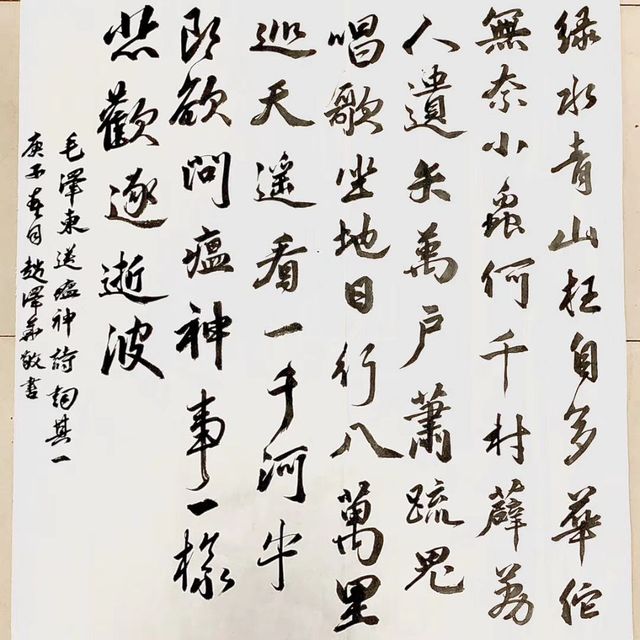 绿水青山枉自多華佗
無奈小蟲何千村薜荔
人遺矢萬户蕭疏鬼
唱歌坐地日行八萬里
巡天遥看一千河牛
郎欲問瘟神事一樣
悲歡逐逝波
毛澤東送瘟神詩詞其一
庚子春月趙澤華敬書